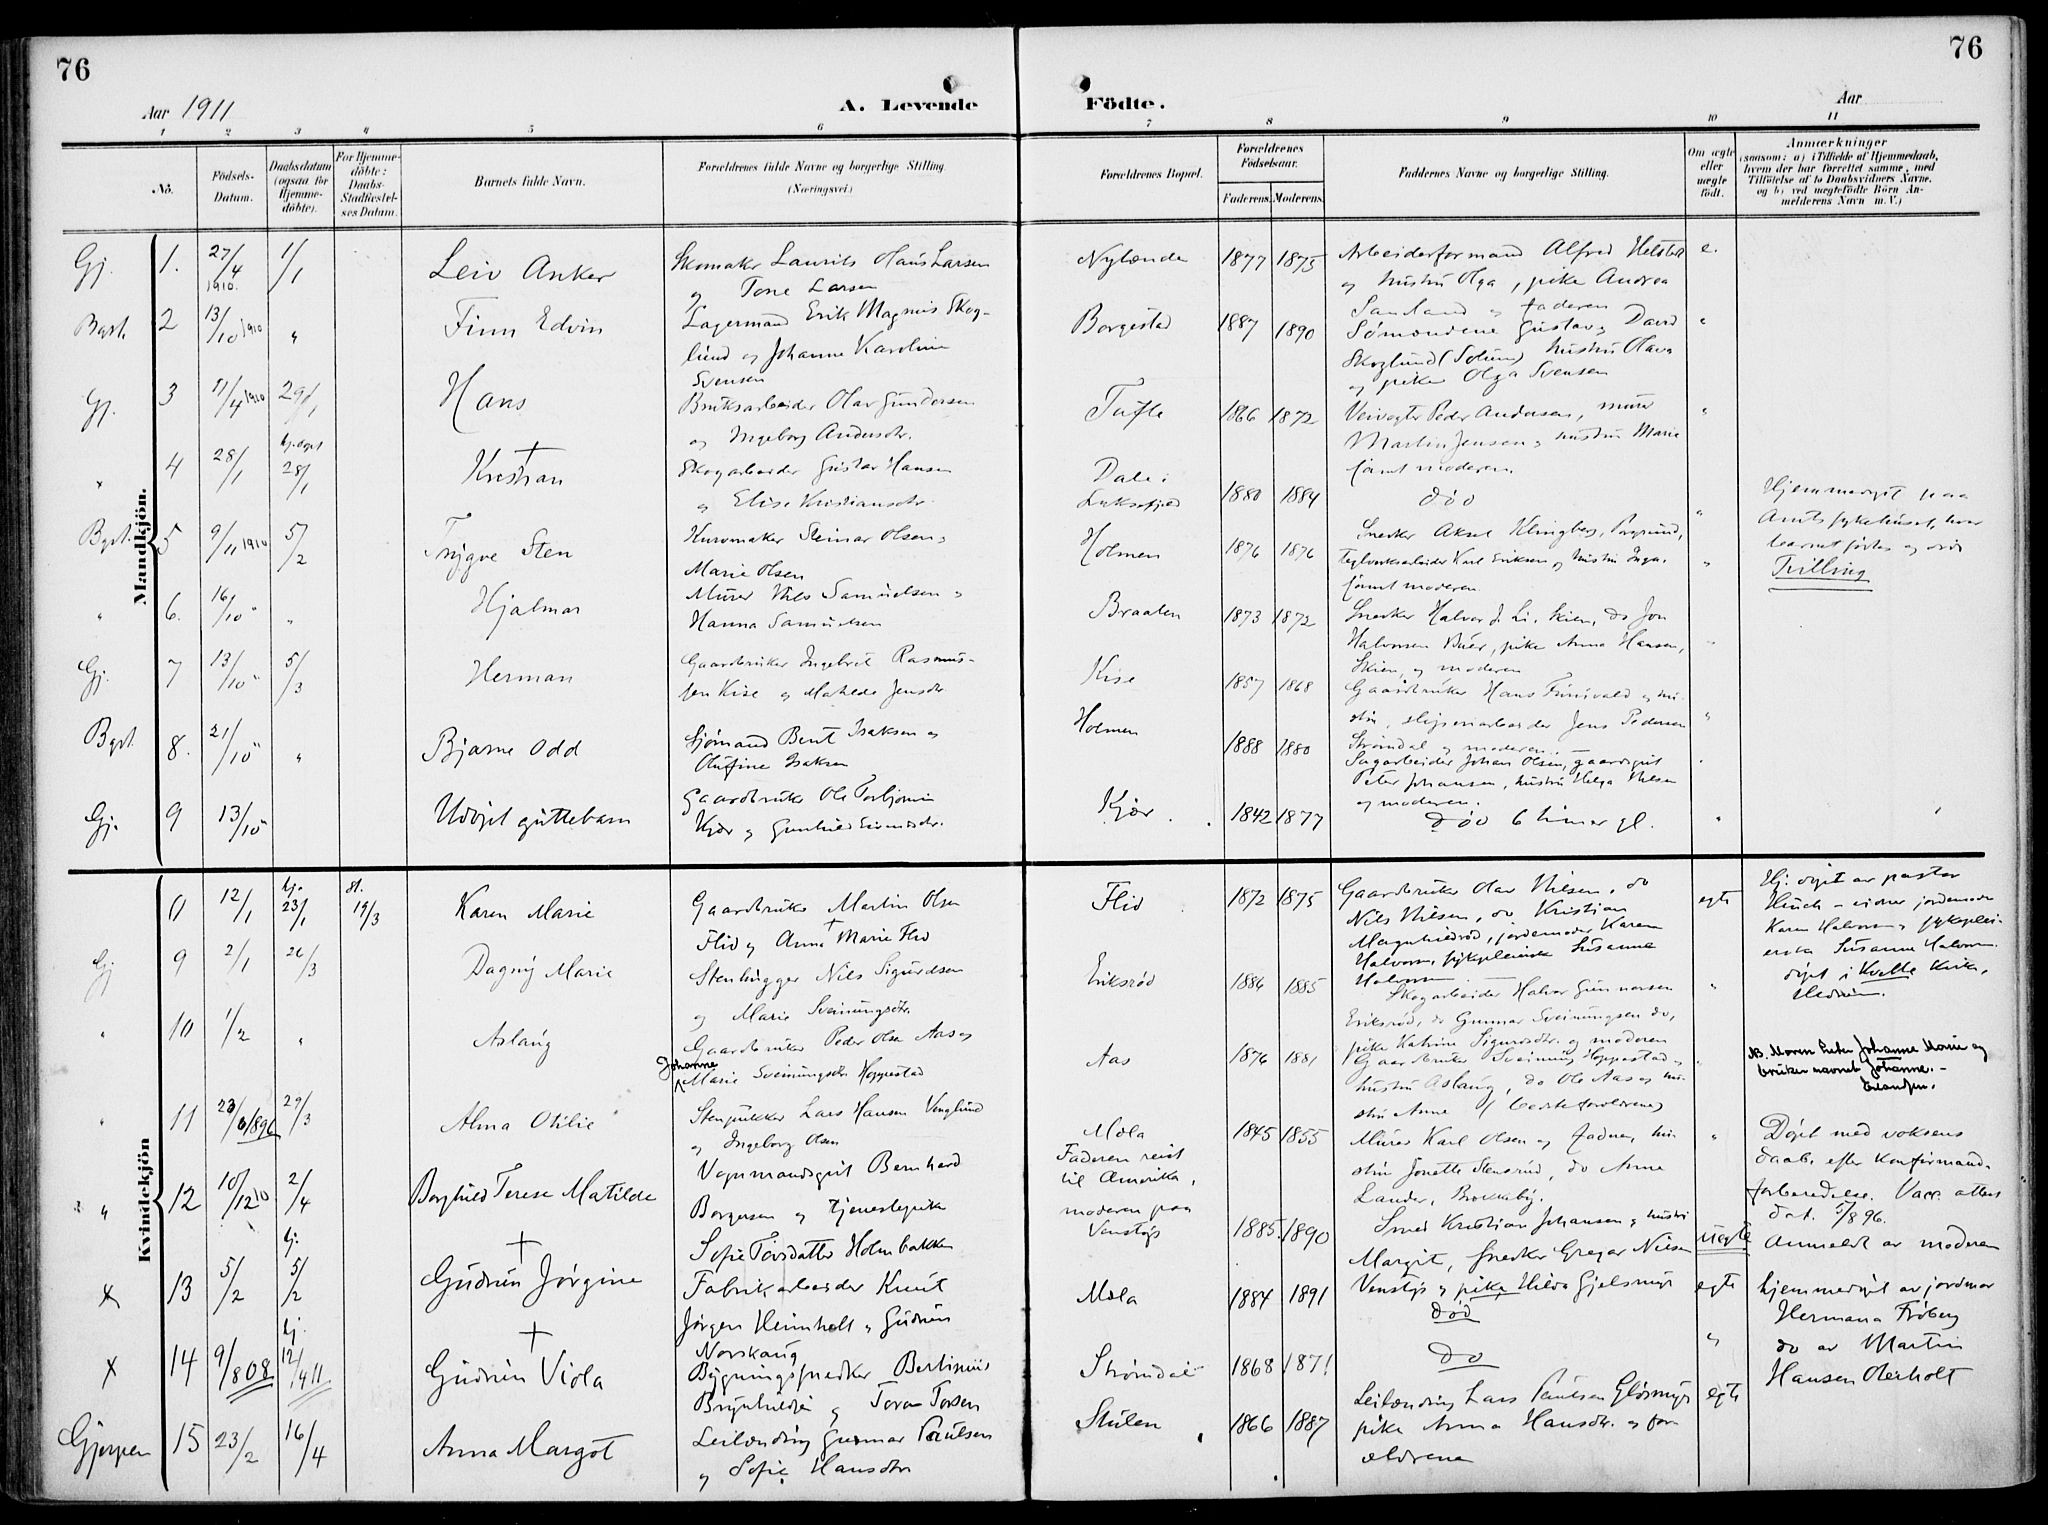 76
76
Aar 1911
A. Levende
Födte.
Aar
1 2 3 4 5 6 7 8 9 10 11
No.
Födsels-Datum.
Daabsdatum (ogsaa for Hjemme-döbte).
For Hjemme-döbte: Daabs-Stadfæstel-ses Datum.
Barnets fulde Navn.
Forældrenes fulde Navne og borgerlige Stilling.
(Næringsvei.)
Forældrenes Bopæl.
Forældrenes Födselsaar.
Faderens. Moderens.
Faddernes Navne og borgerlige Stilling.
Om ægte eller uægte födt.
Anmærkninger
(saasom: a) i Tilfælde af Hjemmedaab,
hvem der har forrettet samme, med
Tilföielse af to Daabsvidners Navne,
og b) ved uægtefödte Börn An-
melderens Navn m. V.)
Mandkjön.
Gj. 1. 27/4 1910. 1/1 Leiv Anker
Skomaker Laurits Olaus Larsen
og Tone Larsen
Nylænde 1877 1875
Arbeiderformand Alfred
og hustru Olga, pike Andrea
Sanland og faderen
e.
Bgst. 2 13/10 1910 " Finn Edvin
Lagermand Erik Magnus Skog-
lund og Johanne Karoline
Svensen
Borgestad 1887 1890
Sømændene Gustav og David
Skoglund (Solum) hustru Olava
og pike Olga Svensen
"
Gj. 3 11/4 1910 29/1 Hans
Bruksarbeider Olav Gundersen
og Ingeborg Andersdtr.
Tufte 1866 1872
Veivogter Peder Andersen, murer
Martin Jensen og hustru Marie
samt moderen.
"
" 4 28/1 hj. døpt 28/1 Kristian
Skogarbeider Gustav Hansen
og Elise Kristiansdtr.
Dale i
Luksefjeld 1880 1884
død
"
Hjemmedøpt paa
Amtssykehuset, hvor
barnet fødtes og døde
Tvilling
Bgst. 5 9/11 1910 5/2 Trygve Sten
Kurvmaker Steinar Olsen og
Marie Olsen
Holmen 1876 1876
Snedker Aksel Klingberg, Porsgrund,
Teglverksarbeider Karl Eriksen og hustru Inga,
samt moderen.
"
" 6. 16/10 " " Hjalmar
Murer Nils Samuelsen og
Hanna Samuelsen
Braaten 1873 1872
Snedker Halvor J. Li, Skien, do Jon
Halvorsen Buer, pike Anna Hansen,
Skien, og moderen
"
Gj. 7 13/10 " 5/3 Herman
Gaardbruker Ingebret Rasmus-
sen Kise og Matilde Jensdtr.
Kise 1857 1868
Gaardbruker Hans og hu-
stru, sliperiarbeider Jens Pedersen
Strømdal og moderen.
"
Bgst. 8. 21/10 " " Bjarne Odd
Sjømand Bent Isaksen og
Olufine Isaksen
Holmen 1888 1880
Sagarbeider Johan Olsen, gaardsgut
Peter Johansen, hustru Helga Nilsen
og moderen.
Gj. 9 13/10 " Udøpt guttebarn
Gaardbruker Ole Torbjørnsen
Kjær og Gunhild
Kjær 1842 1877
død 6 timer gl.
"
Kvindekjön
0 12/1 hj. 23/1 st. 19/3 Karen Marie
Gaardbruker Martin Olsen
Flid og Anna Marie Flid
Flid 1872 1875
Gaardbruker Olav Nilsen, do
Nils Nilsen, do Kristian
jordemoder Karen
Halvorsen, sykepleierske Susanne
Halvorsen
egte
Hj. døpt av pastor
Huch – vidner jordemoder
Karen Halvorsen og sykeplei-
erske Susanne Halvorsen.
døpt i Kvelle kirke,
Hedrum.
Gj 9 2/1 26/3 Dagny Marie
Stenhugger Nils Sigurdsen
og Marie Sveinungsdtr.
Eriksrød 1886 1885
Skogarbeider Halvor Gunnarsen
Eriksrød, do Gunnar Sveinungsen do,
pike Katrine Sigurdsdtr. og moderen
"
" 10 1/2 " Aslaug
Gaardbruker Peder Olsen Aas og
Johanne
Marie Sveinungsdtr. Hoppestad
Aas 1876 1881
Gaardbruker Sveinung Hoppestad og
hustru Aslaug, do Ole Aas og hu-
stru Anne (bedsteforældrene)
NB. Moren heter Johanne Marie og
bruker navnet Johanne. –
Erlandsen.
" 11 23/6 1896 29/3 Alma Otilie
Stenpukker Lars Hansen Venglund
og Ingeborg Olsen
Mæla 1845 1855
Murer Karl Olsen og fadren, hu-
stru Jonette Stensrud, do Anne
Lander, Brekkeby.
"
Døpt med voksens
daab efter konfirmand-
forberedelse. Vacc. attest
dat. 5/8 96.
" 12 10/12 10 2/4 Borghild Terese Matilde
Vognmandsgut Bernhard
Borgersen og tjenestepike
Sofie Torsdatter Holmbakken
Faderen reist
til Amerika,
moderen paa
Venstøp 1885. 1890
Smed Kristian Johansen og hustru
Margit, Snedker Gregar Nilsen
Venstøp og pike Hilda Gjelsmyr
uegte
Anmeldt av moderen
x 13 5/2 hj. 5/2 Gudrun Jørgine
Fabrikarbeider Knut
Jørgen Heimholt og Gudrun
Norskaug
Mæla 1884 1891
død
egte
hjemmedøpt av jordmor
Hermana Frøberg
x 14 9/8 08 hj. 12/4 11 Gudrun Viola
Bygningssnedker Bertinius
Brynhildsen og Toran Torsen
Strømdal 1868 1871
do
"
do av Martin
Hansen Oterholt
Gjerpen 15 23/2 16/4 Anna Margot
Leilænding Gunnar Paulsen
og Sofie Hansdtr
Stulen 1866 1887
Leilænding Lars Paulsen Glosmyr
pike Anna Hansdtr. og for-
ældrene
egte